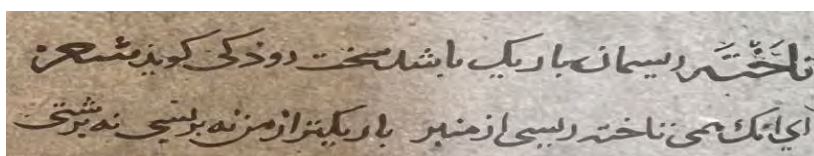 تاخَتَه ریسمان باریک باشد سخت دوذکی کویذ شعر
ای انک همی تاخته ریسی از منبر باریکتر از من نه بریسی نه برشتی